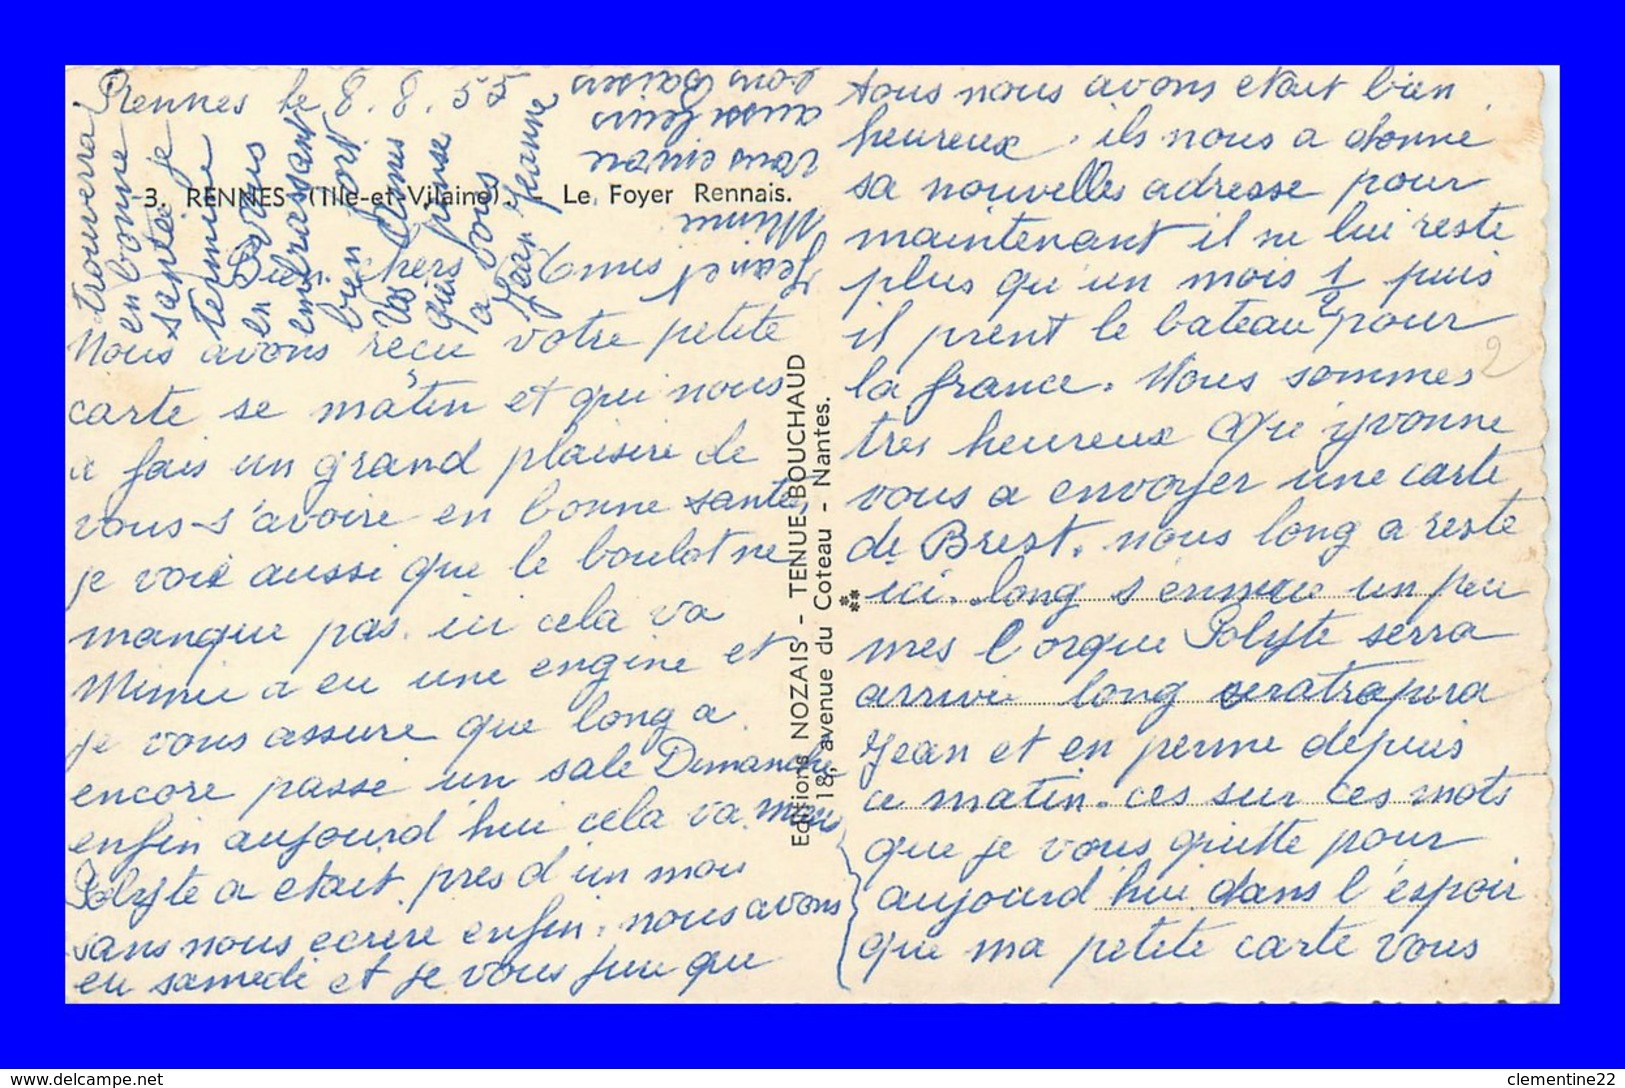 Rennes le 8.8.55
3. RENNES (Ille-et-Vilaine). - Le Foyer Rennais.
Bien chers Amis
Nous avons reçu votre petite
carte se matin et qui nous
a fais un grand plaisire de
vous s'avoire en bonne santé
je voie aussi que le boulot ne
manque pas. ici cela va
Mimie a eu une engine et
je vous assure que long a
encore passé un sale Dimanche
enfin aujourd hui cela va mieus
Polyte a etait pres d'un mois
sans nous ecrire enfin. nous avons
eu samedi et je vous jure que
tous nous avons etait bien
heureux, ils nous a donné
sa nouvelles adresse pour
maintenant il ne lui reste
plus qu'un mois 1/2 puis
il prent le bateau pour
la france. Nous sommes
tres heureux Que yvonne
vous a envoyer une carte
de Brest. nous long a reste
ici. long s'ennuie un peu
mes l'orque Polyte serra
arrivé long seratrapera
Jean et en perme depuis
ce matin. ces sur ces mots
que je vous quitte pour
aujourd hui dans l'espoir
que ma petite carte vous
trouvera
en bonne
santé je
termine
en vous
embrassant
bien fort
Vos Amis
qui pense
a vous
Jean Jeanne
Jean et
Mimie
vous envoie
aussi leurs
bons baisers
Editions NOZAIS - TENUE BOUCHAUD
18, avenue du Coteau - Nantes.
2
https://www.delcampe.net
clementine22